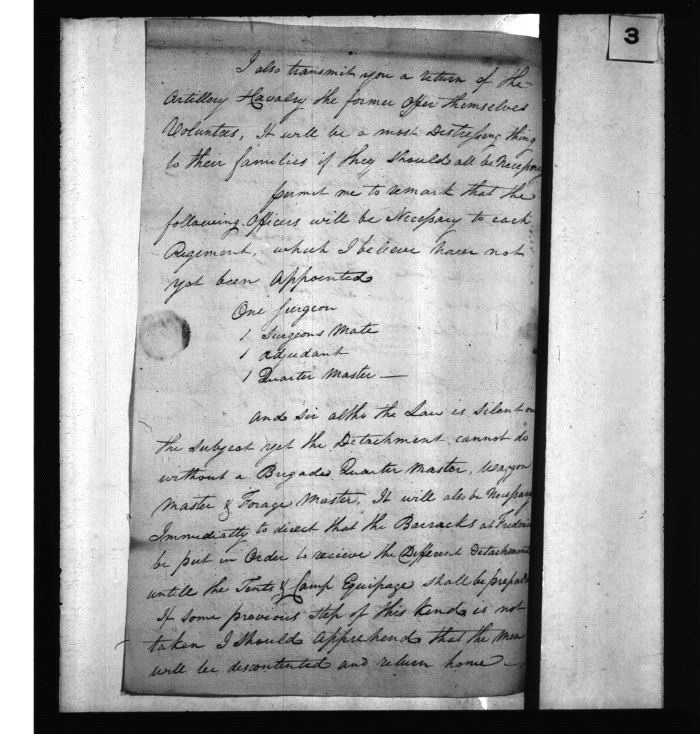 3
I also transmit you a return of the
Artillery & Cavalry the former offer themselves
Voluntees, It will be a most Distressing thing
to their families if they should all be Necessary
permit me to remark that the
following Officers will be Necessary to each
Regement, which I believe have not
yet been appointed
One Surgeon
1 Surgeons Mate
1 Adjudant
1 Quarter Master —
And sir altho the Law is silent on
the subject yet the Detachment cannot do
without a Brigade Quarter Master, Waggon
Master & Forage Master, It will also be Necessary
Immediatly to direct that the Barracks at
be put in Order to recieve the Different Detachments
untill the Tents & Camp Equipage shall be
If some previous step of this kind is not
taken I should apprehend that the Men
will be discontented and return home —